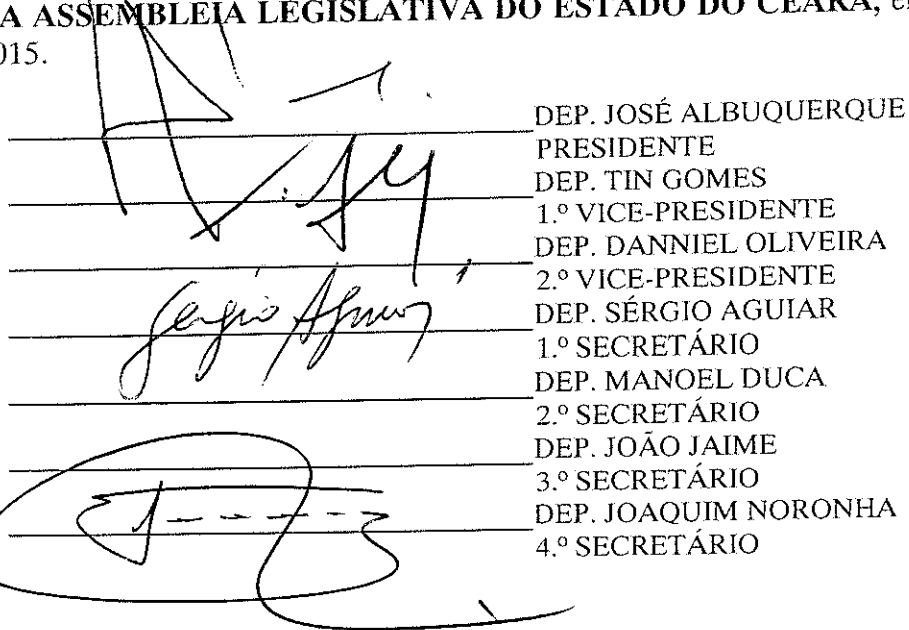 A ASSEMBLEIA LEGISLATIVA DO ESTADO DO CEARÁ,
015.
DEP. JOSÉ ALBUQUERQUE
PRESIDENTE
DEP. TIN GOMES
1.º VICE-PRESIDENTE
DEP. DANNIEL OLIVEIRA
2.º VICE-PRESIDENTE
Sérgio Aguiar
DEP. SÉRGIO AGUIAR
1.º SECRETÁRIO
DEP. MANOEL DUCA
2.º SECRETÁRIO
DEP. JOÃO JAIME
3.º SECRETÁRIO
DEP. JOAQUIM NORONHA
4.º SECRETÁRIO